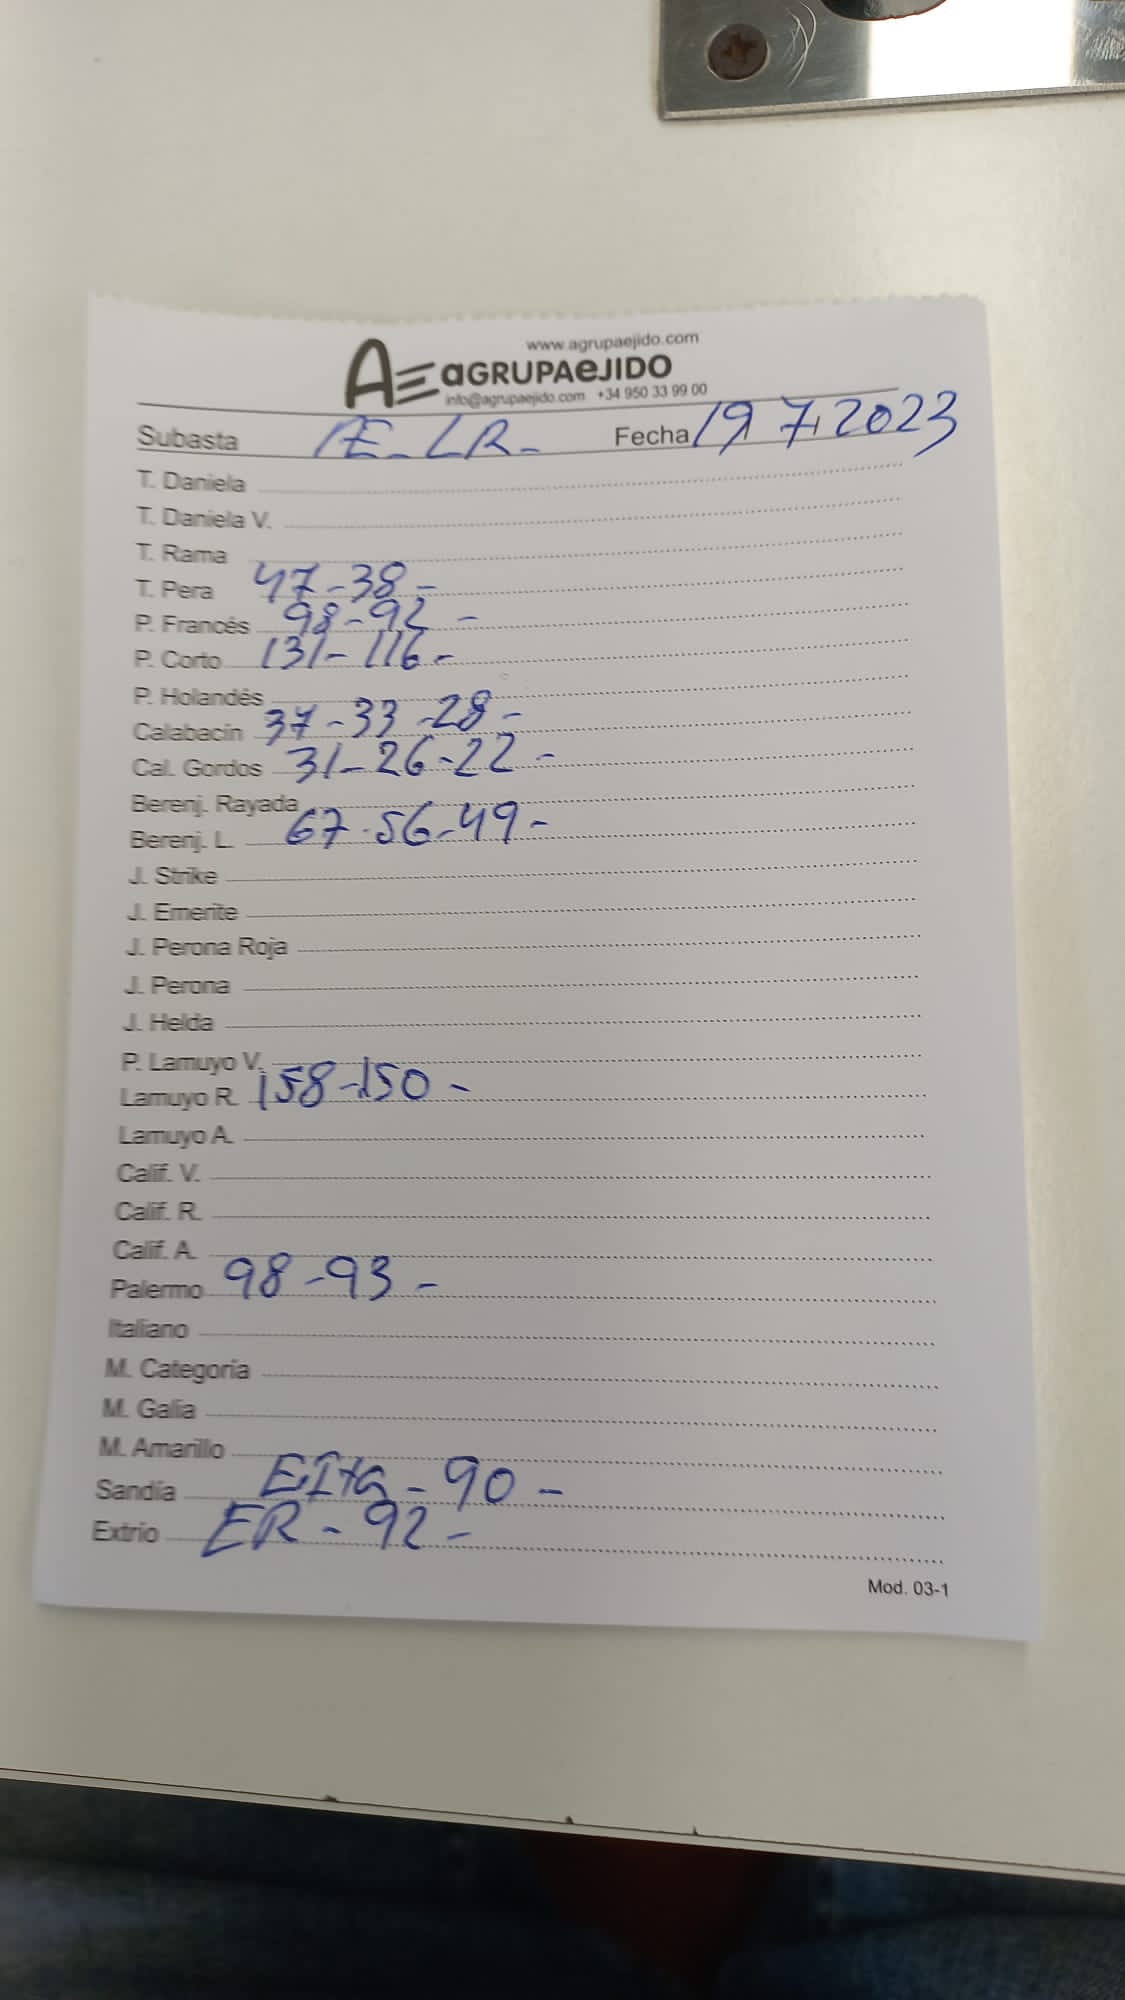 www.agrupaejido.com
AE aGRUPAeJIDO
info@agrupaejido.com +34 950 33 99 00
Subasta AE - LR - Fecha 19 7, 2023
T. Daniela
T. Daniela V.
T. Rama
T. Pera 47-38-
P. Francés 98-92 -
P. Corto 131-116-
P. Holandés
Calabacín 37-33-28-
Cal. Gordos 31-26-22-
Berenj. Rayada
Berenj. L. 67-56-49-
J. Strike
J. Emerite
J. Perona Roja
J. Perona
J. Helda
P. Lamuyo V.
Lamuyo R. 158-150-
Lamuyo A.
Calif. V.
Calif. R.
Calif. A.
Palermo 98-93-
Italiano
M. Categoría
M. Galia
M. Amarillo
Sandía - 90 -
Extrio ER - 92 -
Mod. 03-1